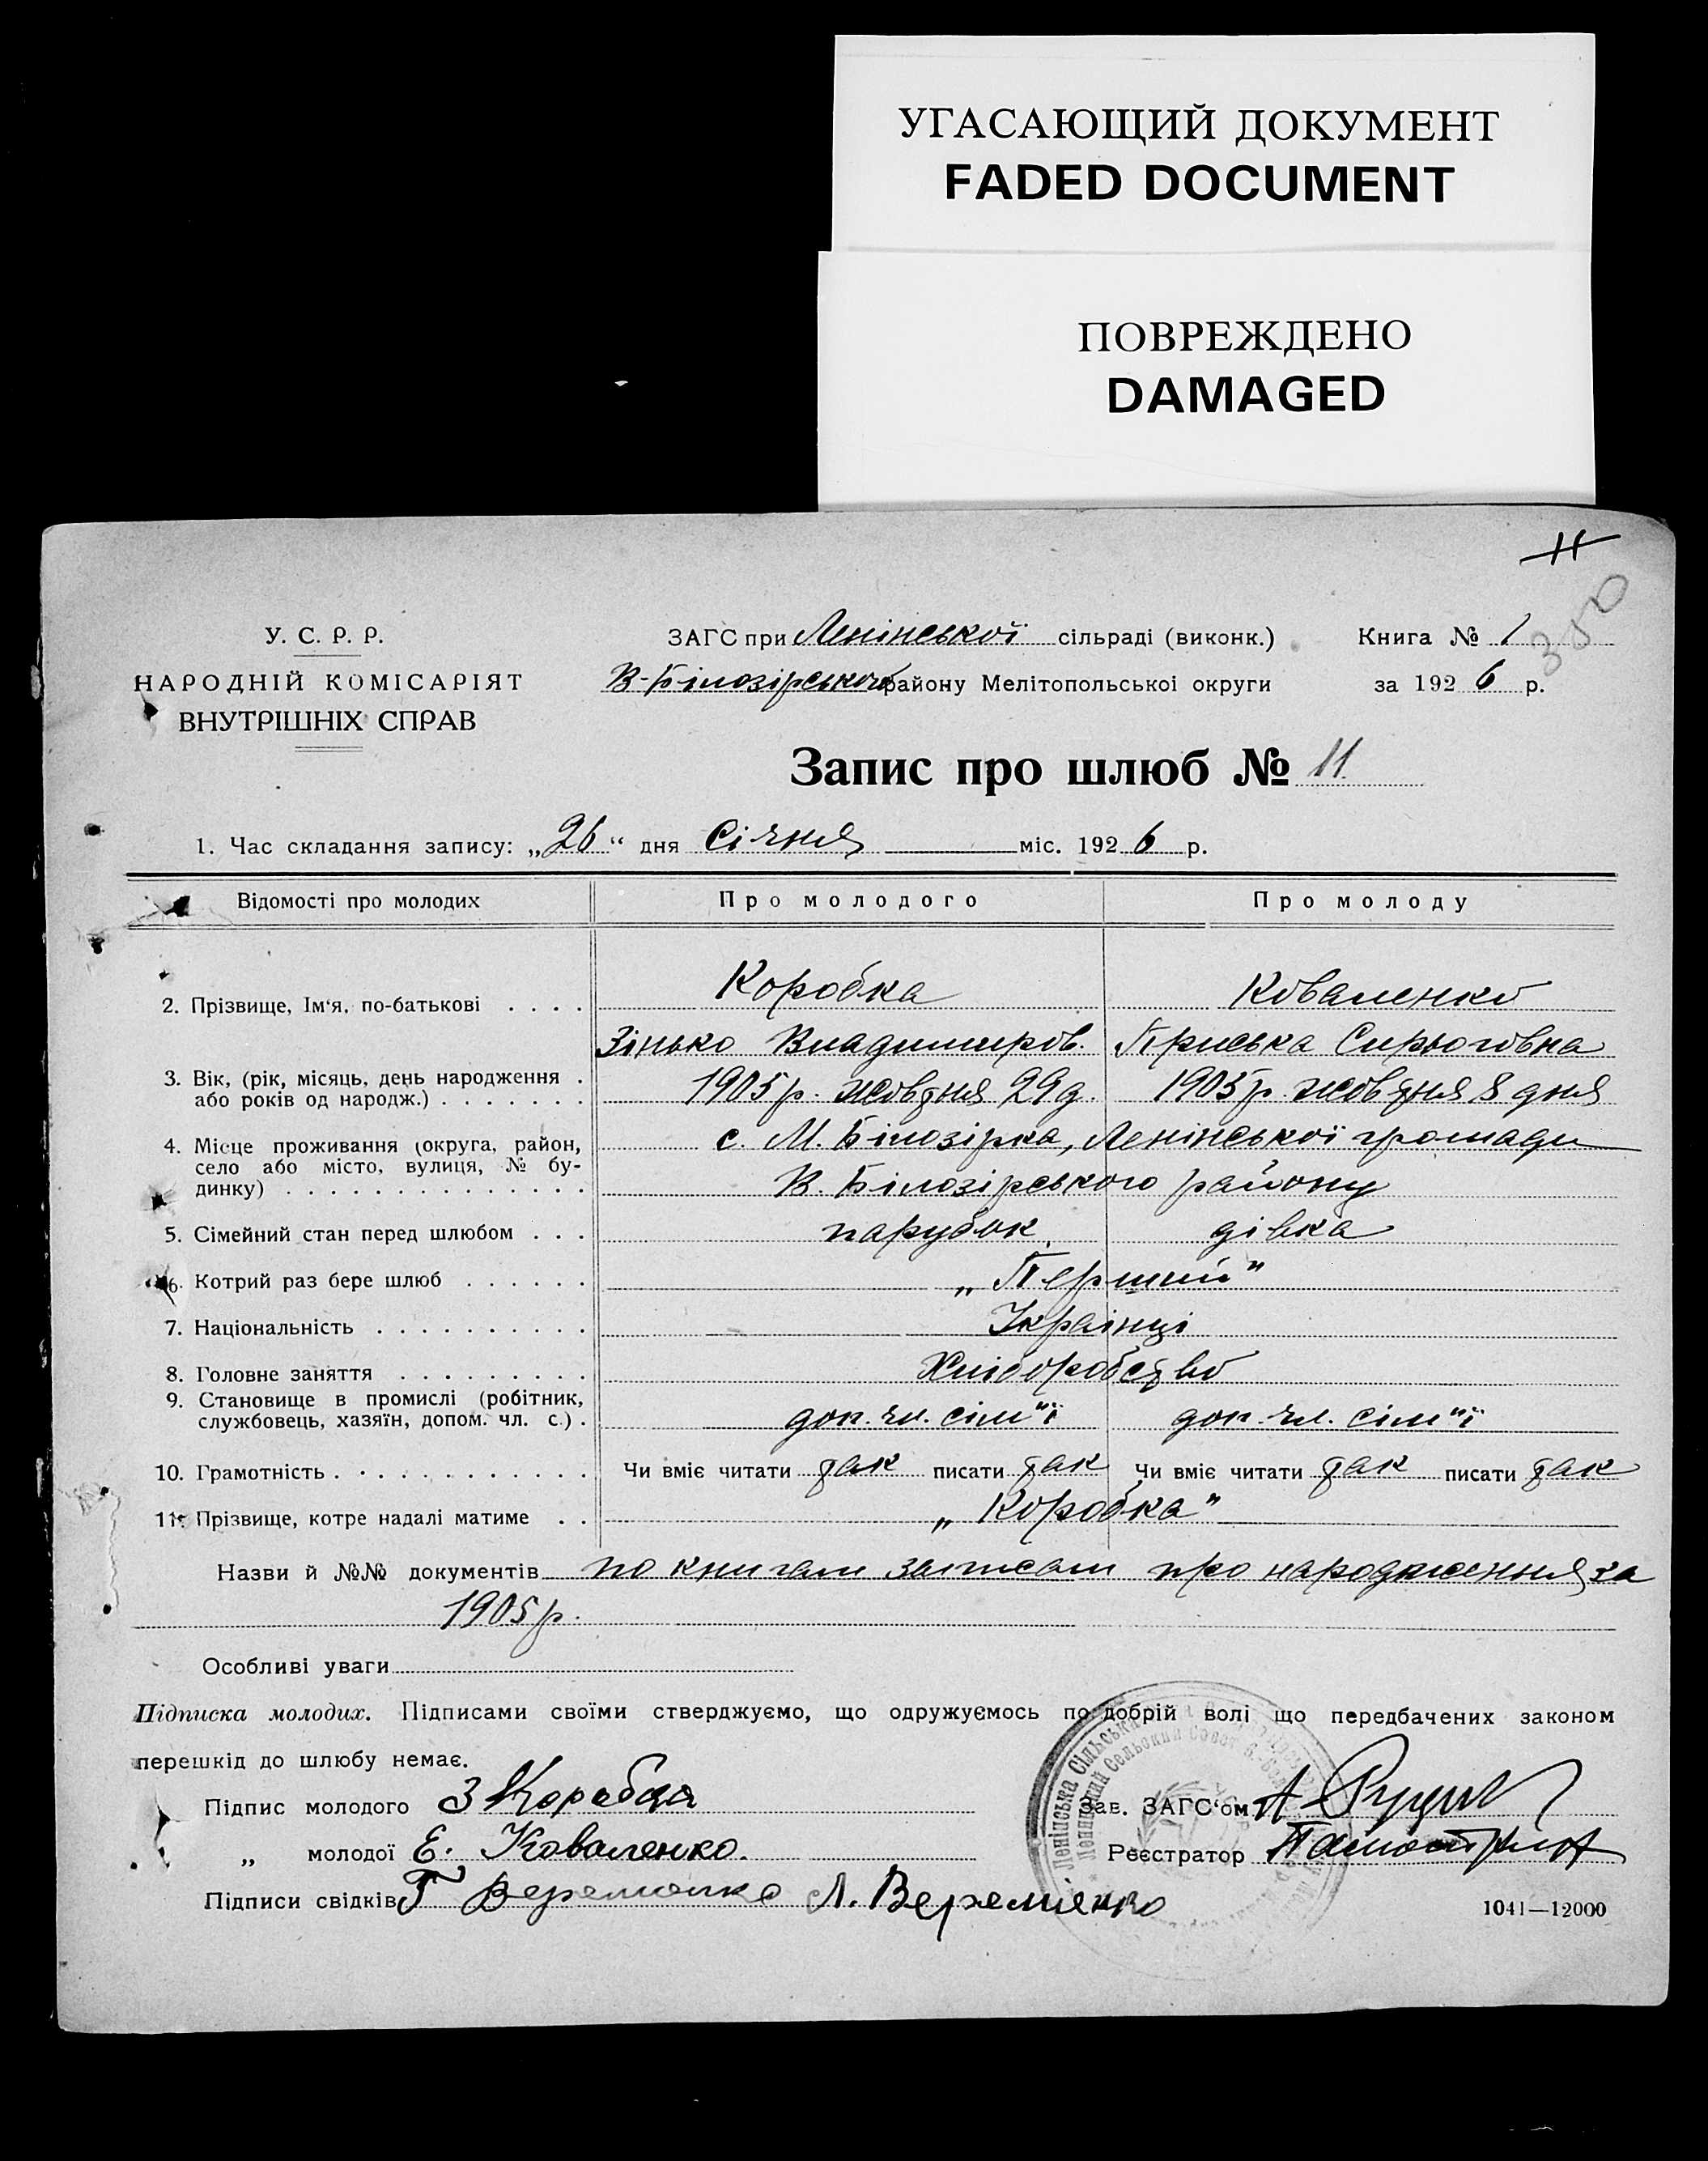 УГАСАЮЩИЙ ДОКУМЕНТ
FADED DOCUMENT
ПОВРЕЖДЕНО
DAMAGED
11
350
У. С. Р. Р.
НАРОДНІЙ КОМІСАРІЯТ
ВНУТРІШНІХ СПРАВ
ЗАГС при Ленінської сільраді (виконк.)
В-Білозірського району Мелітопольської округи
Книга № 1
за 1926 р.
Запис про шлюб № 11
1. Час складання запису: „26“ дня Січня міс. 1926 р.
Відомості про молодих Про молодого Про молоду
2. Прізвище, Ім'я, по-батькові . . . . Коробка Коваленко
Зінько Владимиров.Приська Сирьоговна
3. Вік, (рік, місяць, день народження . 1905 р. жовтня 29 д. 1905 р. жовтня 8 дня
або років од народж.) . . . . . . .
4. Місце проживання (округа, район, с. М. Білозірка, Ленінської громади
село або місто, вулиця, № бу-
динку) . . . . . . . . . . . . . . В. Білозірського району
5. Сімейний стан перед шлюбом . . . парубок дівка
6. Котрий раз бере шлюб . . . . . . „Перший"
7. Національність . . . . . . . . . . Українці
8. Головне заняття . . . . . . . . . Хліборобство
9. Становище в промислі (робітник,
службовець, хазяїн, допом. чл. с.) . доп. чл. сім"ї доп. чл. сім"ї
10. Грамотність . . . . . . . . . . . . Чи вміє читати так писати так Чи вміє читати так писати так
11. Прізвище, котре надалі матиме . . „Коробка"
Назви й №№ документів по книгам записам про народження за
1905 р.
Особливі уваги
Підписка молодих. Підписами своїми стверджуємо, що одружуємось по добрій волі що передбачених законом
перешкід до шлюбу немає.
Підпис молодого З Коробка
„ молодої Е. Коваленко.
Підписи свідків Г Веременко Л. Веремієнко
Зав. ЗАГС'ом А
Реєстратор
1041—12000
Ленінська Сільська
Ленинский Сельский Совет